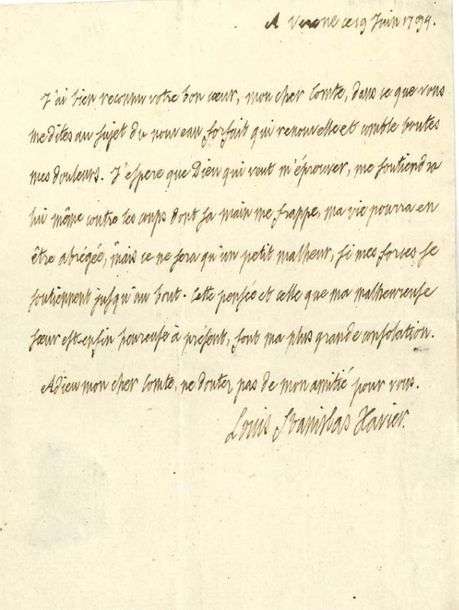 A Verone ce 19 Juin 1794.
J'ai bien reconnu votre bon cœur, mon cher Comte, dans ce que vous
me dites au sujet du nouveau forfait qui renouvelle et comble toutes
mes douleurs. J'espere que Dieu qui veut m'éprouver, me soutiendra
lui même contre les coups dont sa main me frappe, ma vie pourra en
être abrégée, mais ce ne sera qu'un petit malheur, si mes forces se
soutiennent jusqu'au bout. Cette pensée et celle que ma malheureuse
sœur est enfin heureuse à présent, sont ma plus grande consolation.
Adieu mon cher Comte, ne doutez pas de mon amitié pour vous.
Louis Stanislas Xavier.